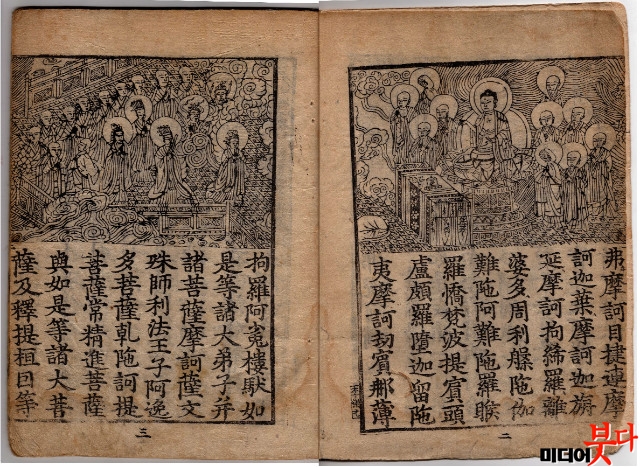 弗摩訶目捷連摩
訶迦葉摩訶迦旃
延摩訶拘絺羅離
婆多周利槃陁伽
難陁阿難陁羅睺
羅憍梵波提賓頭
盧頗羅墮迦留陁
夷摩訶劫賓那薄
二
拘羅阿㝹樓馱如
是等諸大弟子并
諸菩薩摩訶薩文
殊師利法王子阿逸
多菩薩乾陁訶提
菩薩常精進菩薩
與如是等諸大菩
薩及釋提桓因等
三
미디어붓다